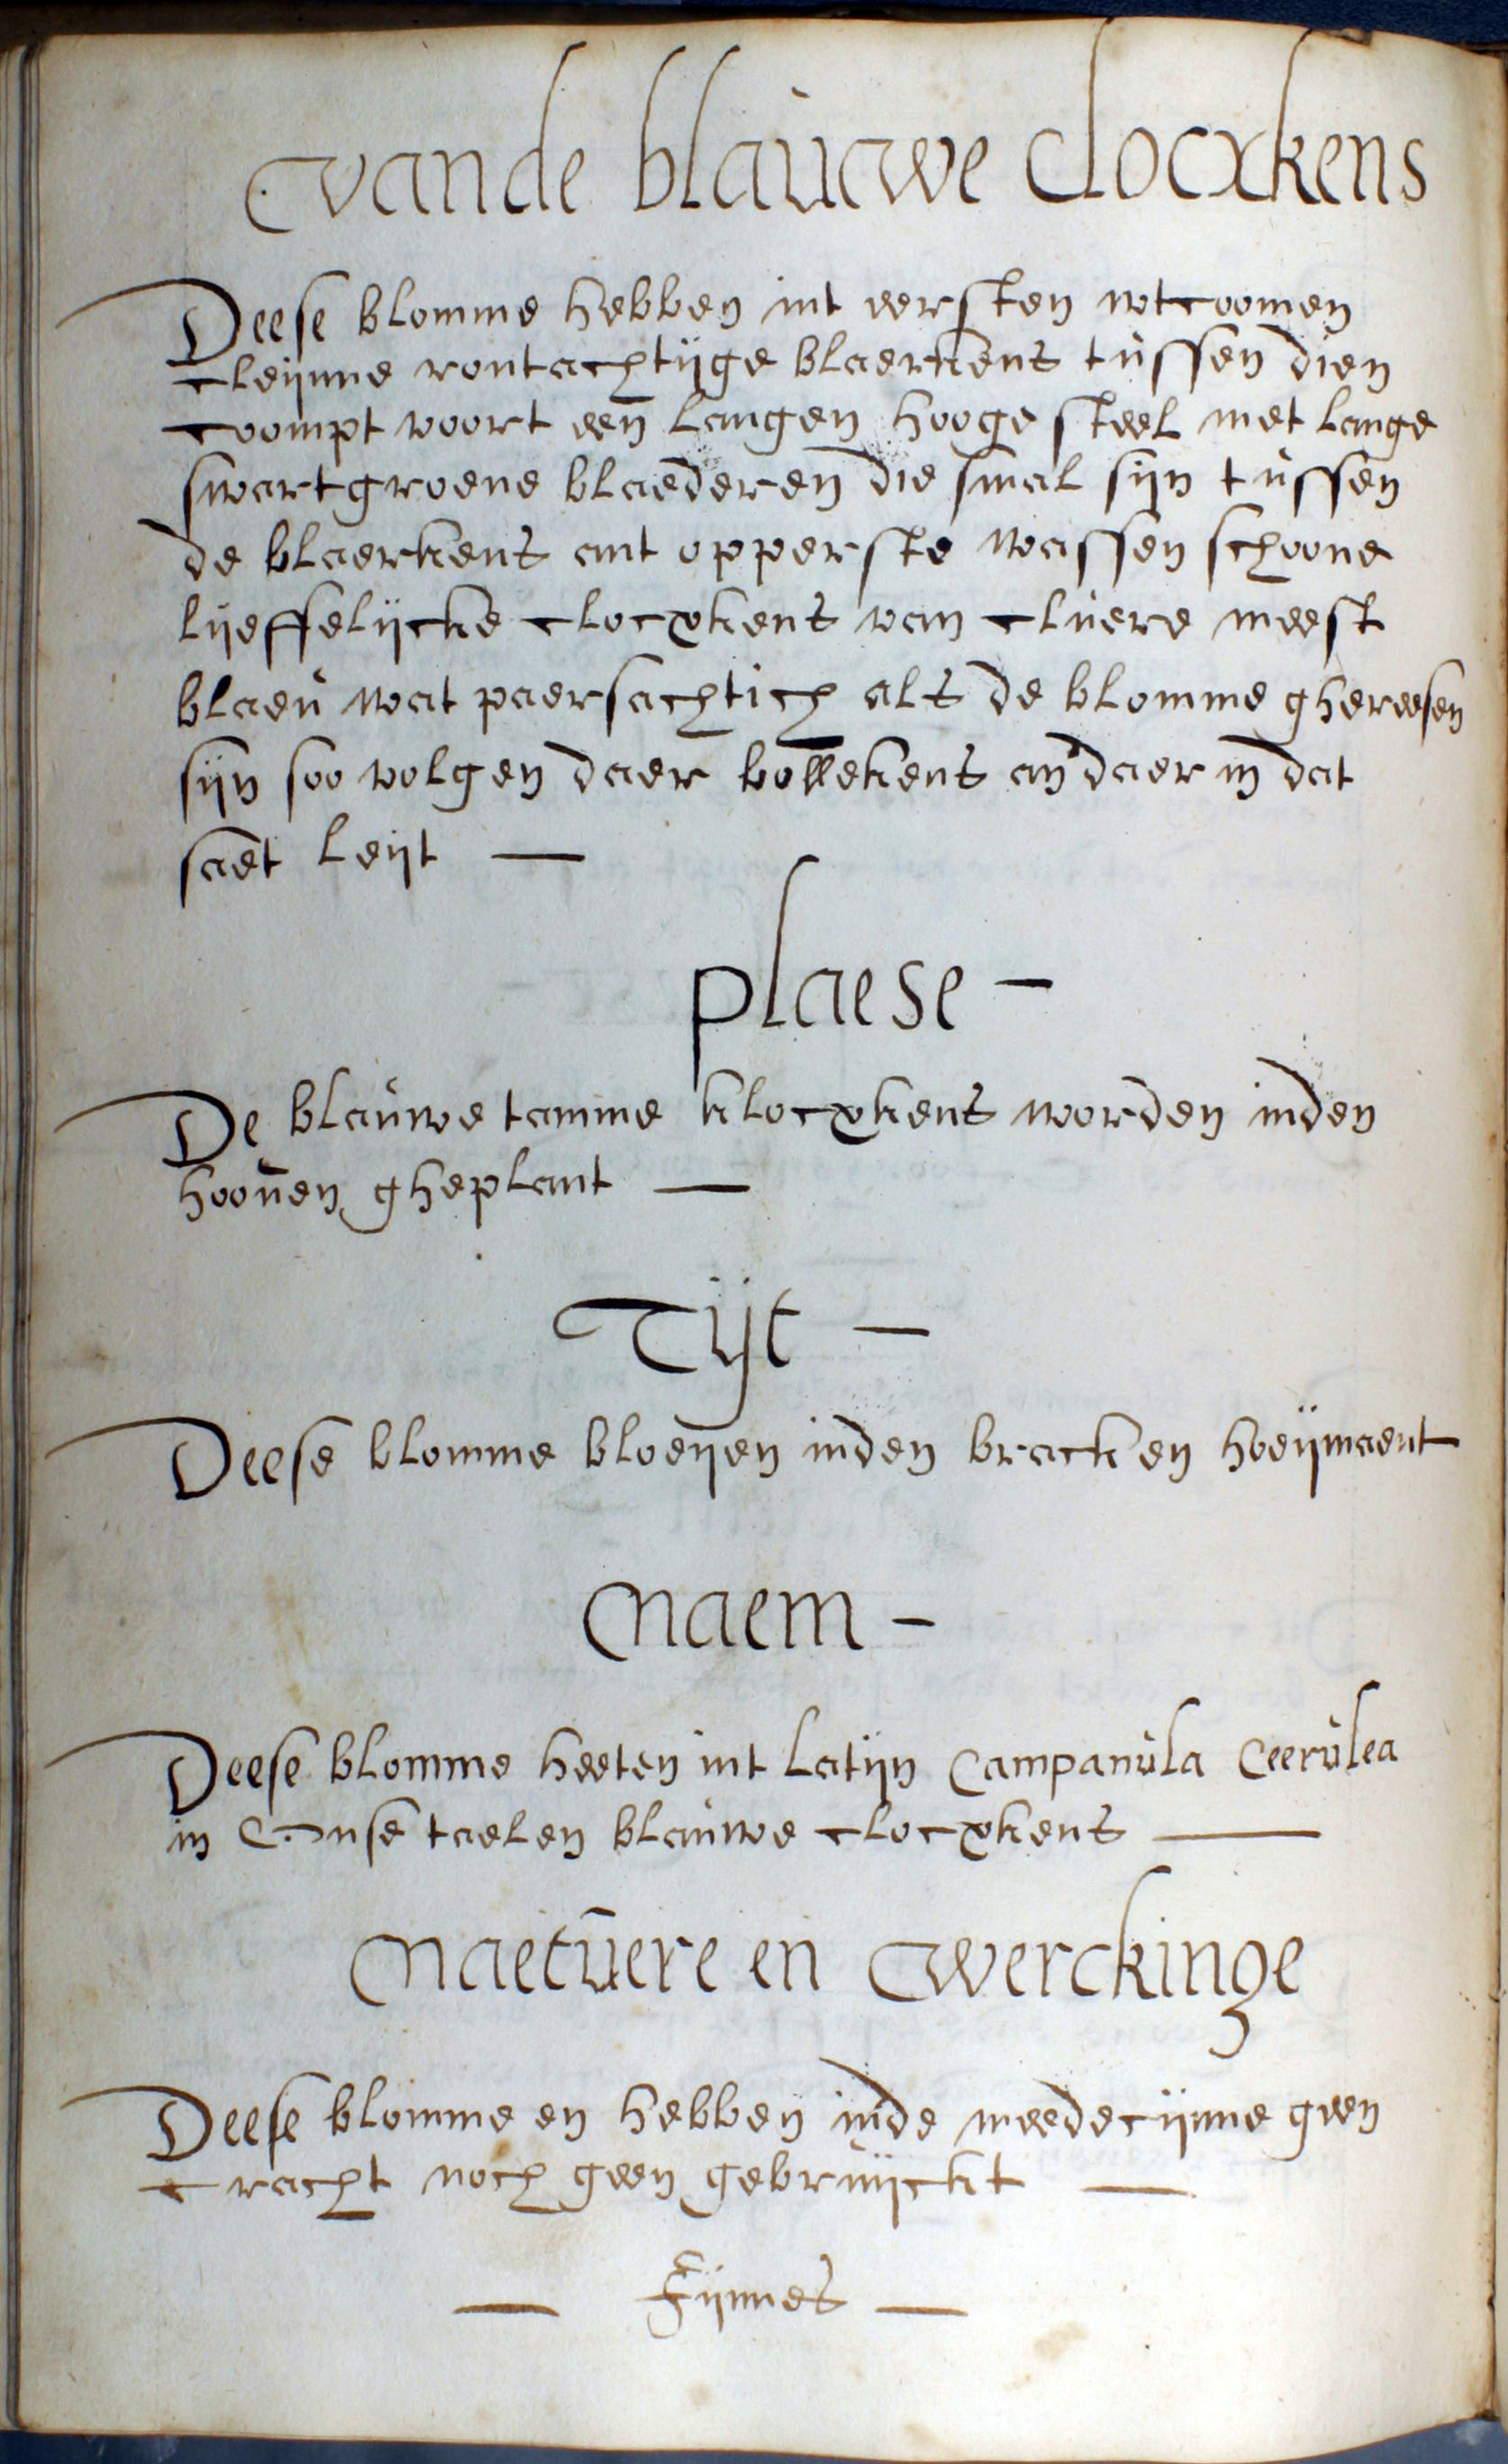 vande blauwe clocxkens
Deese blomme hebben int eersten wtcoomen
cleijnne rontachtijge blaerkens tussen dien
coompt voort een langen hooge steel met lange
swartgroene blaederen die smal sijn tussen
de blaerkens ant opperste wassen schoone
lijeffelijcke clocxkens van cluere meest
blaeu wat paersachtich als de blomme ghereesen
sijn soo volgen daer bollekens an daer in dat
saet leijt —
plaese –
De blauwe tamme klocxkens worden inden
hoouen gheplant —
Tijt –
Deese blomme bloeijen inden bracken hoeijmaent
Naem –
Deese blomme heeten int latijn Campanula Ceerulea
in Onse taelen blauwe clocxkens —
Naetuere en werckinge
Deese blomme en hebben inde meedecijnne geen
cracht noch geen gebruijckt —
— Fijnnes —